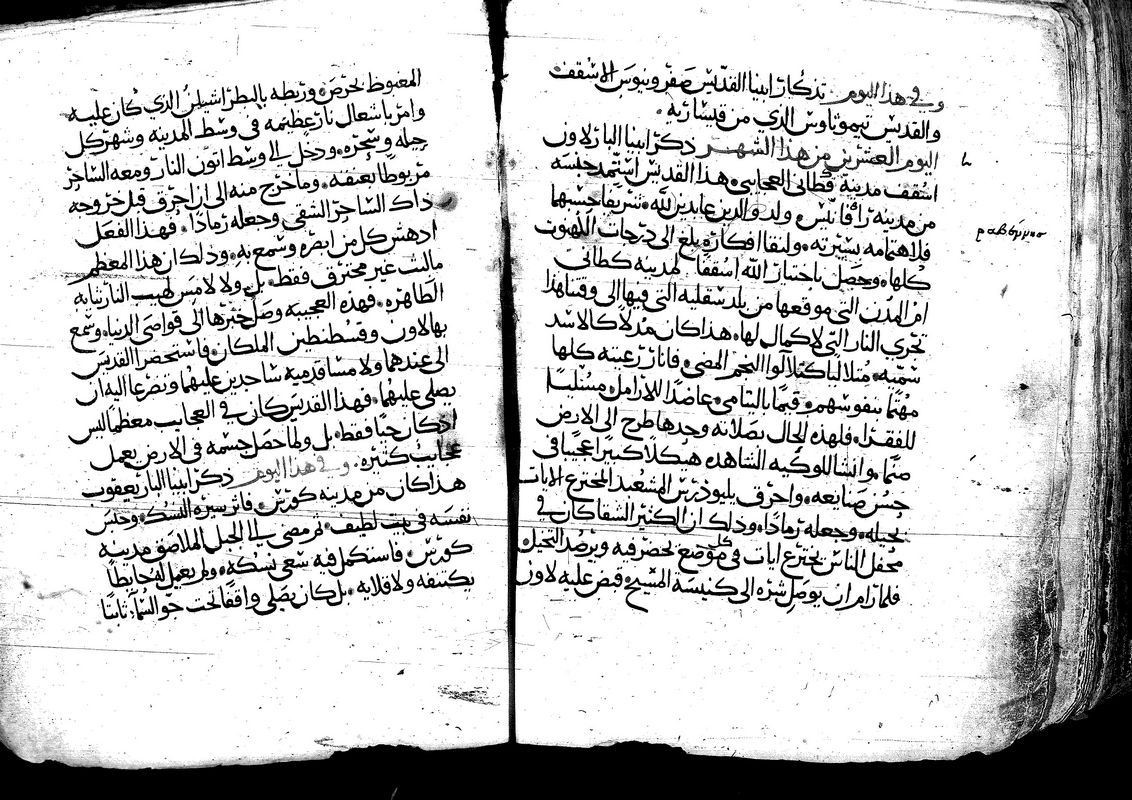 وفي هذا اليوم تذكار ابينا القديس صفرونيوس الاسقف
والقديس تيموثاوس الذي من قيسارية
اليوم العشرين من هذا الشهر ذكر ابينا البار لاون
اسقف مدينة قطاني العجايبي هذا القديس استمد جنسه
من مدينة ولد والدين عابدين لله شريفا حسبهما
فلاهتمامه بسيرته ولنقا افكاره بلغ الى درجات اللاهوت
كلها وحصل باختيار الله اسقفا لمدينة كطاني
ام المدن التي موقعها من بلد سقلية التي فيها الى وقتنا هذا
تجري النار التي لا كمال لها هذا كان مدلاكا لاشد
شمسه متلاليا كتلالوا النجم المضي فانار رعيته كلها
مهتما بنفوسهم قيما باليتامى عاضدا للارامل مسليا
للفقرا فلهذه الحال بصلاته وحدها طرح الى الارض
صنما وانشا للوكيه الشاهده هيكلا كبيرا عجيبا في
حسن صنايعه واحرق بليوذرس المشعبد المخترع الايات
بحيله وجعله رمادا وذلك ان الكثير الشقا كان في
محفل الناس يخترع ايات في كل موضع يحضر فيه ويرصد التخيل
فلما رام ان يوصل شره الى كنيسة المسيح قبض عليه لاون
ραβέννης
المغبوط بحرص وربطه بالبطرشيل الذي كان عليه
وامر باشعال نار عظيمه في وسط المدينه وشهر كل
حيله وسحره ودخل الى وسط اتون النار ومعه الساحر
مربوطا بعنقه وما خرج منه الى ان احرق قبل خروجه
ذاك الساحر الشقي وجعله رمادا فهذا الفعل
ادهش كل من ابصره وسمع به وذلك ان هذا المعظم
مالبث غير محترق فقط بل ولا لامس لهيب النار ثيابه
الطاهره فهذه العجيبه وصل خبرها الى قواصي الدنيا وسمع
بها لاون وقسطنطين الملكان فاستحضر القديس
الى عندهما ولامسا قدميه ساجدين عليهما وتضرعا اليه ان
يصلي عليهما فهذا القديس كان في العجايب معظما ليس
اذ كان حيا فقط بل ولما حصل جسمه في الارض يعمل
عجايب كثيره وفي هذا اليوم ذكر ابينا البار يعقوب
هذا كان من مدينة كورس فاثر سيرة النسك وحبس
نفسه في بيت لطيف ثم مضى الى الجبل الملاصق مدينة
كورس فاستكمل فيه سعي نسكه ولم يعمل له حايطا
يكتنفه ولا قلاية بل كان يصلي واقفا تحت جو السما ثابتا